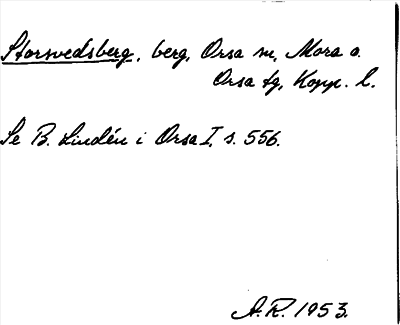 Storsvedsberg, berg, Orsa sn, Mora o.
Orsa tg, Kopp. l.
Se B. Lindén i Orsa I, s. 556.
A.R. 1953.